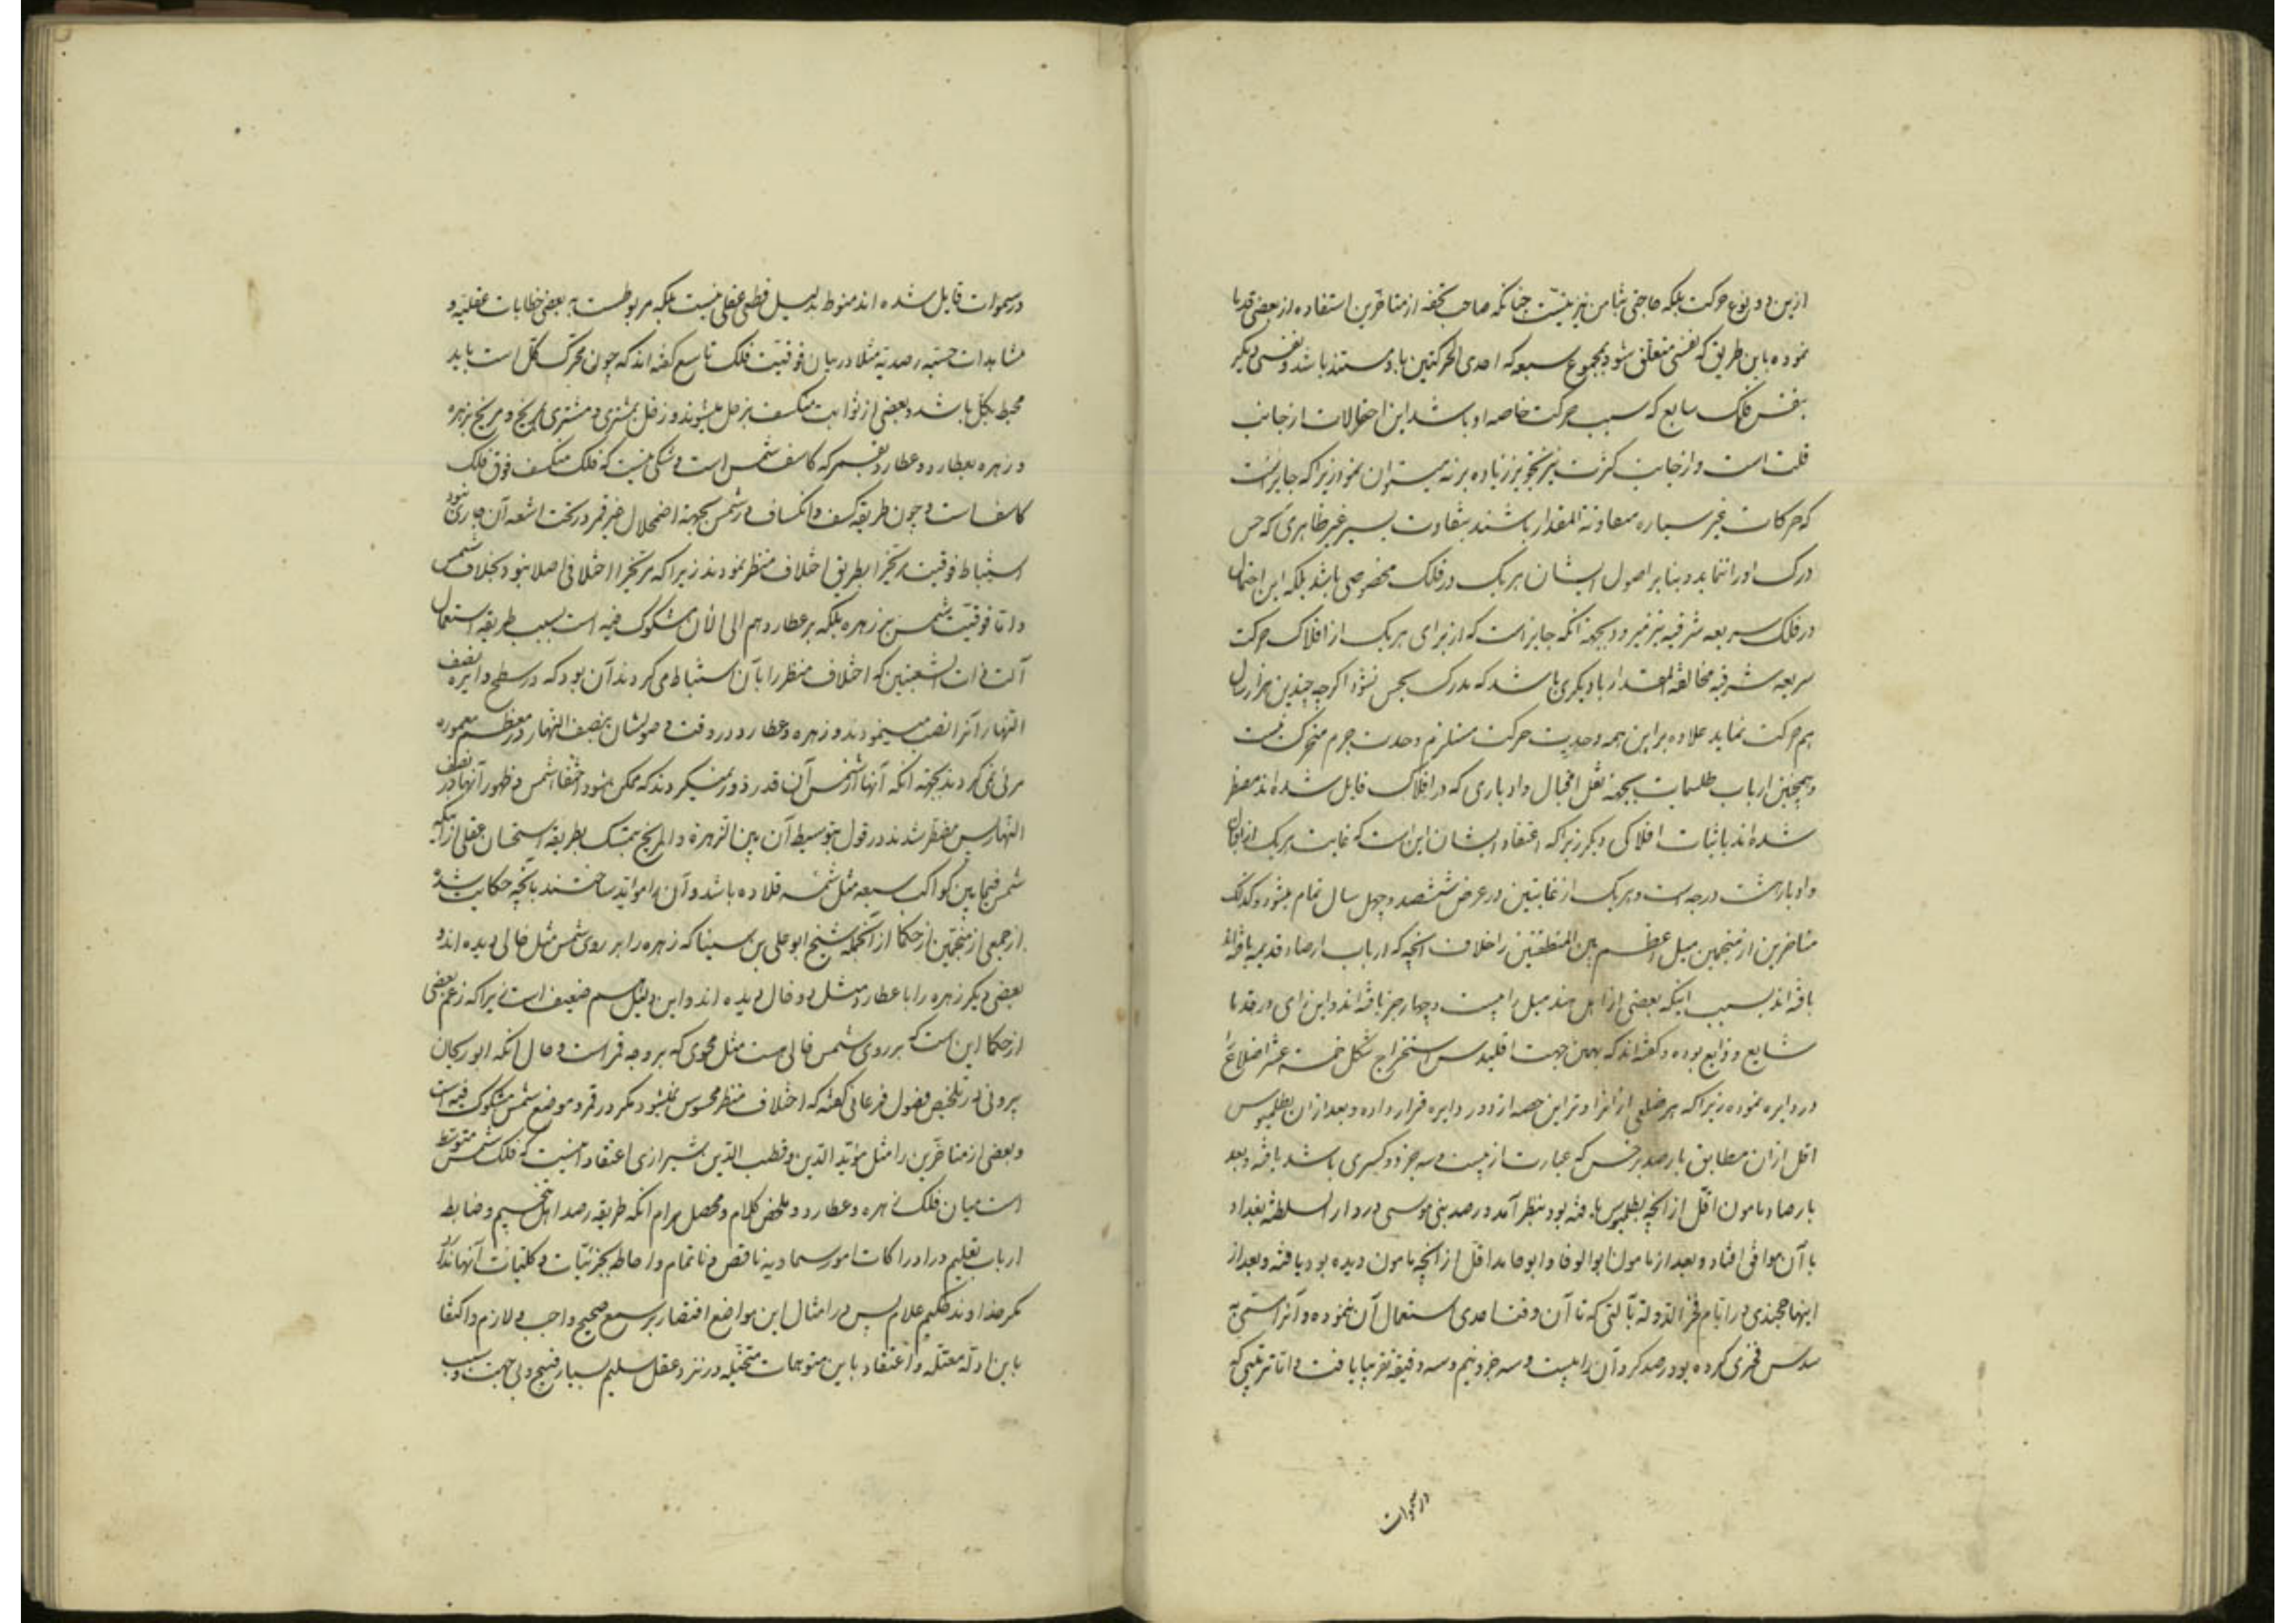 ازین دو نوع حرکت بلکه حاجتی بثامن نیز نیست چنانکه صاحب تحفه از متاخرین استفاده از بعضی قدما
نموده باین طریق که نفسی متعلق شود بمجموع سبعه که احدی الحرکتین باو مستند باشد و نفسی دیگر
بنفس فلک سابع که سبب حرکت خاصه او باشد این احتمالات از جانب
قلت است و از جانب کثرت نیز تجویز زیاده برنه میتوان نمود زیرا که جایز است
که حرکات غیر سیاره متفاوتة المقدار باشند بتفاوت یسیر غیر ظاهری که حس
درک او را ننماید و بنابر اصول ایشان هر یک در فلک مخصوصی باشد بلکه این احتمال
در فلک سریعه شرقیه نیز میرود بجهة انکه جایز است که از برای هر یک از افلاک حرکت
سریعه شرقیه مخالفة المقدار با دیکری باشد که مدرک بحس نشود اکرچه چندین هزار سال
هم حرکت نماید علاوه بر این همه وحدت حرکت مستلزم وحدت جرم متحرک نیست
و همچنین ارباب طلسمات بجهة نقل اقبال و ادباری که در افلاک قایل شده اند مضطر
شده اند باثبات افلاکی دیکر زیرا که اعتقاد ایشان این است که غایت هر یک از اقبال
و ادبار هشت درجه است و هر یک از غایتین در عرض ششصد و چهل سال تمام میشود و کذلک
متاخرین از منجمین میل اعظم بین المنطقتین را خلاف انچه که ارباب ارصاد قدیمه یافته اند
یافته اند بسبب اینکه بعضی از اهل هند میل را بیست و چهار جزء یافته اند و این رای در قدما
شایع و ذایع بوده و کفته اند که بهمین جهت اقلیدس استخراج شکل خمسة عشر اضلاعی
در دایره نموده زیرا که هر ضلعی از انرا وتر این حصه از دور دایره قرار داده و بعد از ان بطلمیوس
اقل از ان مطابق با رصد برخس که عبارت از بیست و سه جزء و کسری باشد یافته و بعد
بارصاد مامون اقل از انچه بطلمیوس یافته بود بنظر آمد و رصد بنی موسی در دار السلطنة بغداد
با آن موافق افتاد و بعد از مامون ابوالوفا و ابوحامد اقل از انچه مامون دیده بود یافته و بعد از
اینها خجندی در ایام فخر الدولة بآلتی که تا آن وقت احدی استعمال آن ننموده و آنرا مسمی به
سدس فخری کرده بود رصد کرد و آن را بیست و سه جزء و نیم و سه دقیقه تقریبا یافت و اما ترتیبی که
در سموات
در سموات قایل شده اند منوط بدلیل قطعی عقلی نیست بلکه مربوطست به بعضی خطابات عقلیه و
مشاهدات حسیه رصدیه مثلا در بیان فوقیت فلک تاسع کفته اند که چون محرک کل است باید
محیط بکل باشد و بعضی از ثوابت منکسف بزحل میشوند و زحل بمشتری و مشتری بمریخ و مریخ بزهره
و زهره بعطارد و عطارد بقمر که کاسف شمس است و شکی نیست که فلک منکسف فوق فلک
کاسف است و چون طریقه کسف و انکساف در شمس بجهة اضمحلال غیر قمر در تحت اشعه آن جاری نبود
استنباط فوقیت مریخ را بطریق اختلاف منظر نمودند زیرا که مریخ را اختلافی اصلا نبود بخلاف شمس
و اما فوقیت شمس بر زهره بلکه بر عطارد هم الی الآن مشکوک فیه است بسبب طریقه استعمال
آلت ذات الشعبتین که اختلاف منظر را بآن استنباط میکردند آن بود که در سطح دایره نصف
النهار آنرا نصب مینمودند و زهره و عطارد در وقت وصولشان بنصف النهار در معظم معموره
مرئی نمیکردند بجهة انکه آنها از شمس آن قدر دور نمیکردند که ممکن شود اختفا شمس و ظهور آنها در نصف
النهار پس مضطر شدند در قول بتوسیط آن بین الزهرة و المریخ بتمسک بطریقه استحسان عقلی از اینکه
شمس فیمابین کواکب سبعه مثل شمسه قلاده باشد و آن را موایّد ساختند بانچه حکایت شده
از جمعی از منجمین از حکما از آنجمله شیخ ابو علی بن سینا که زهره را بر روی شمس مثل خالی دیده اند و
بعضی دیگر زهره را با عطارد مثل دو خال دیده اند و این دلیل هم ضعیف است زیرا که زعم بعضی
از حکما این است که بر روی شمس خالی هست مثل محوی که بر وجه قمر است و حال انکه ابو ریحان
بیرونی در تلخیص فصول فرغانی کفته که اختلاف منظر محسوس نمیشود مکر در قمر و موضع شمس مشکوک فیه است
و بعضی از متاخرین را مثل مؤید الدین و قطب الدین شیرازی اعتقاد اینست که فلک شمس متوسط
است میان فلک زهره و عطارد و ملخص کلام و محصل مرام انکه طریقه رصد اهل تنجیم و ضابطه
ارباب تعلیم در ادراکات امور سماویه ناقص و ناتمام و احاطه بجزئیات و کلیات آنها ندارد
مکر خداوند حکیم علام پس در امثال این مواضع اقتصار بر سمع صحیح واجب و لازم و اکتفا
باین ادله معتله و اعتقاد باین متوهمات متخیله در نزد عقل سلیم بسیار قبیح و بی جهت و سبب